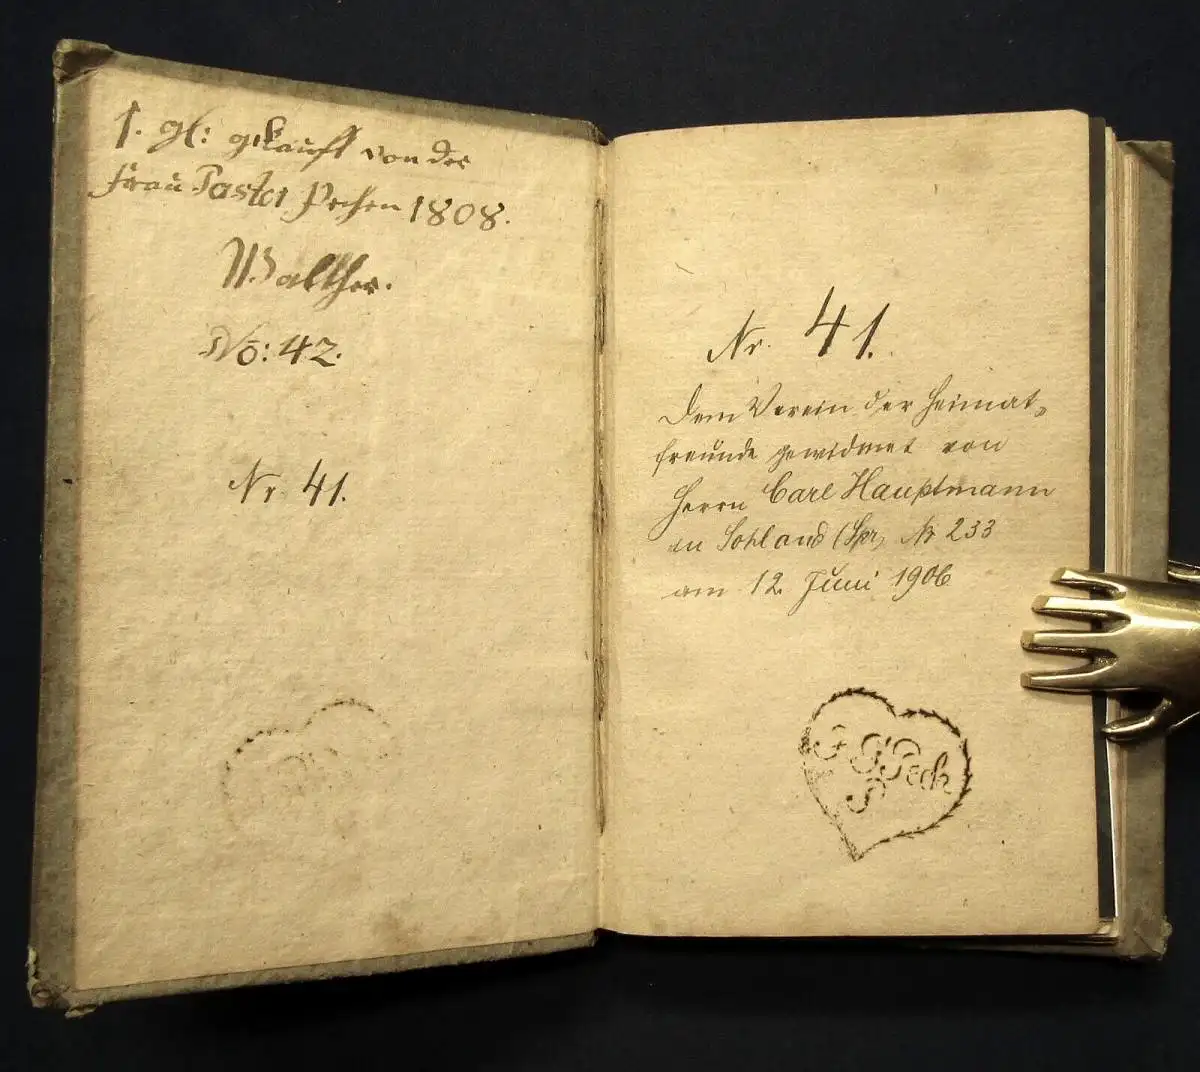 1. gl: gekauft von der
Frau Pastor Pechen 1808.
Walther.
No: 42.
Nr. 41.
Nr. 41.
Dem Verein der Heimat-
freunde gewidmet von
Herrn Carl Hauptmann
in Sohland (Spr) Nr 233
am 12. Juni 1906